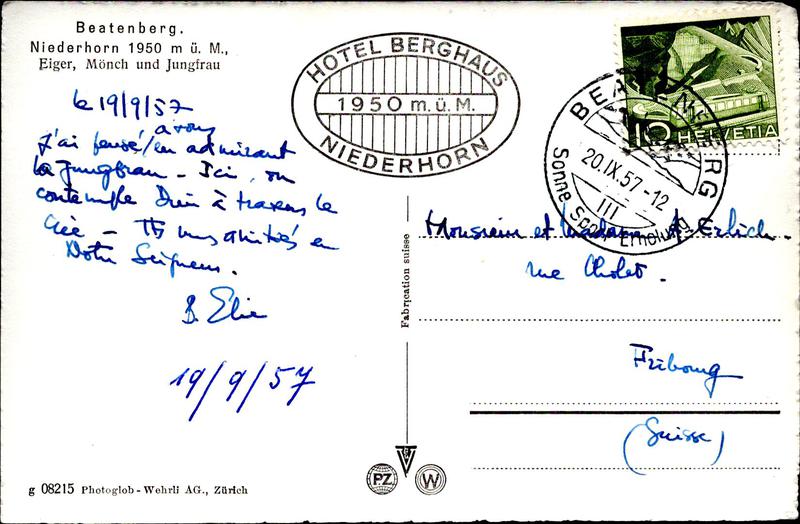 Beatenberg.
Niederhorn 1950 m ü. M.,
Eiger, Mönch und Jungfrau
HOTEL BERGHAUS
1950 m.ü.M.
NIEDERHORN
BEATENBERG
20.IX.57-12
III
Sonne Sport Erholung
10 HELVETIA
le 19/9/57
à vous
J'ai pensé/en admirant
la Jungfrau - Ici, on
contemple Dieu à travers le
créé - Tts mes amitiés en
Notre Seigneur.
B. Elie
19/9/57
Fabrication suisse
Monsieur et Madame Erlich.
rue Cholet.
Fribourg
(Suisse)
PZ
W
g 08215 Photoglob-Wehrli AG., Zürich